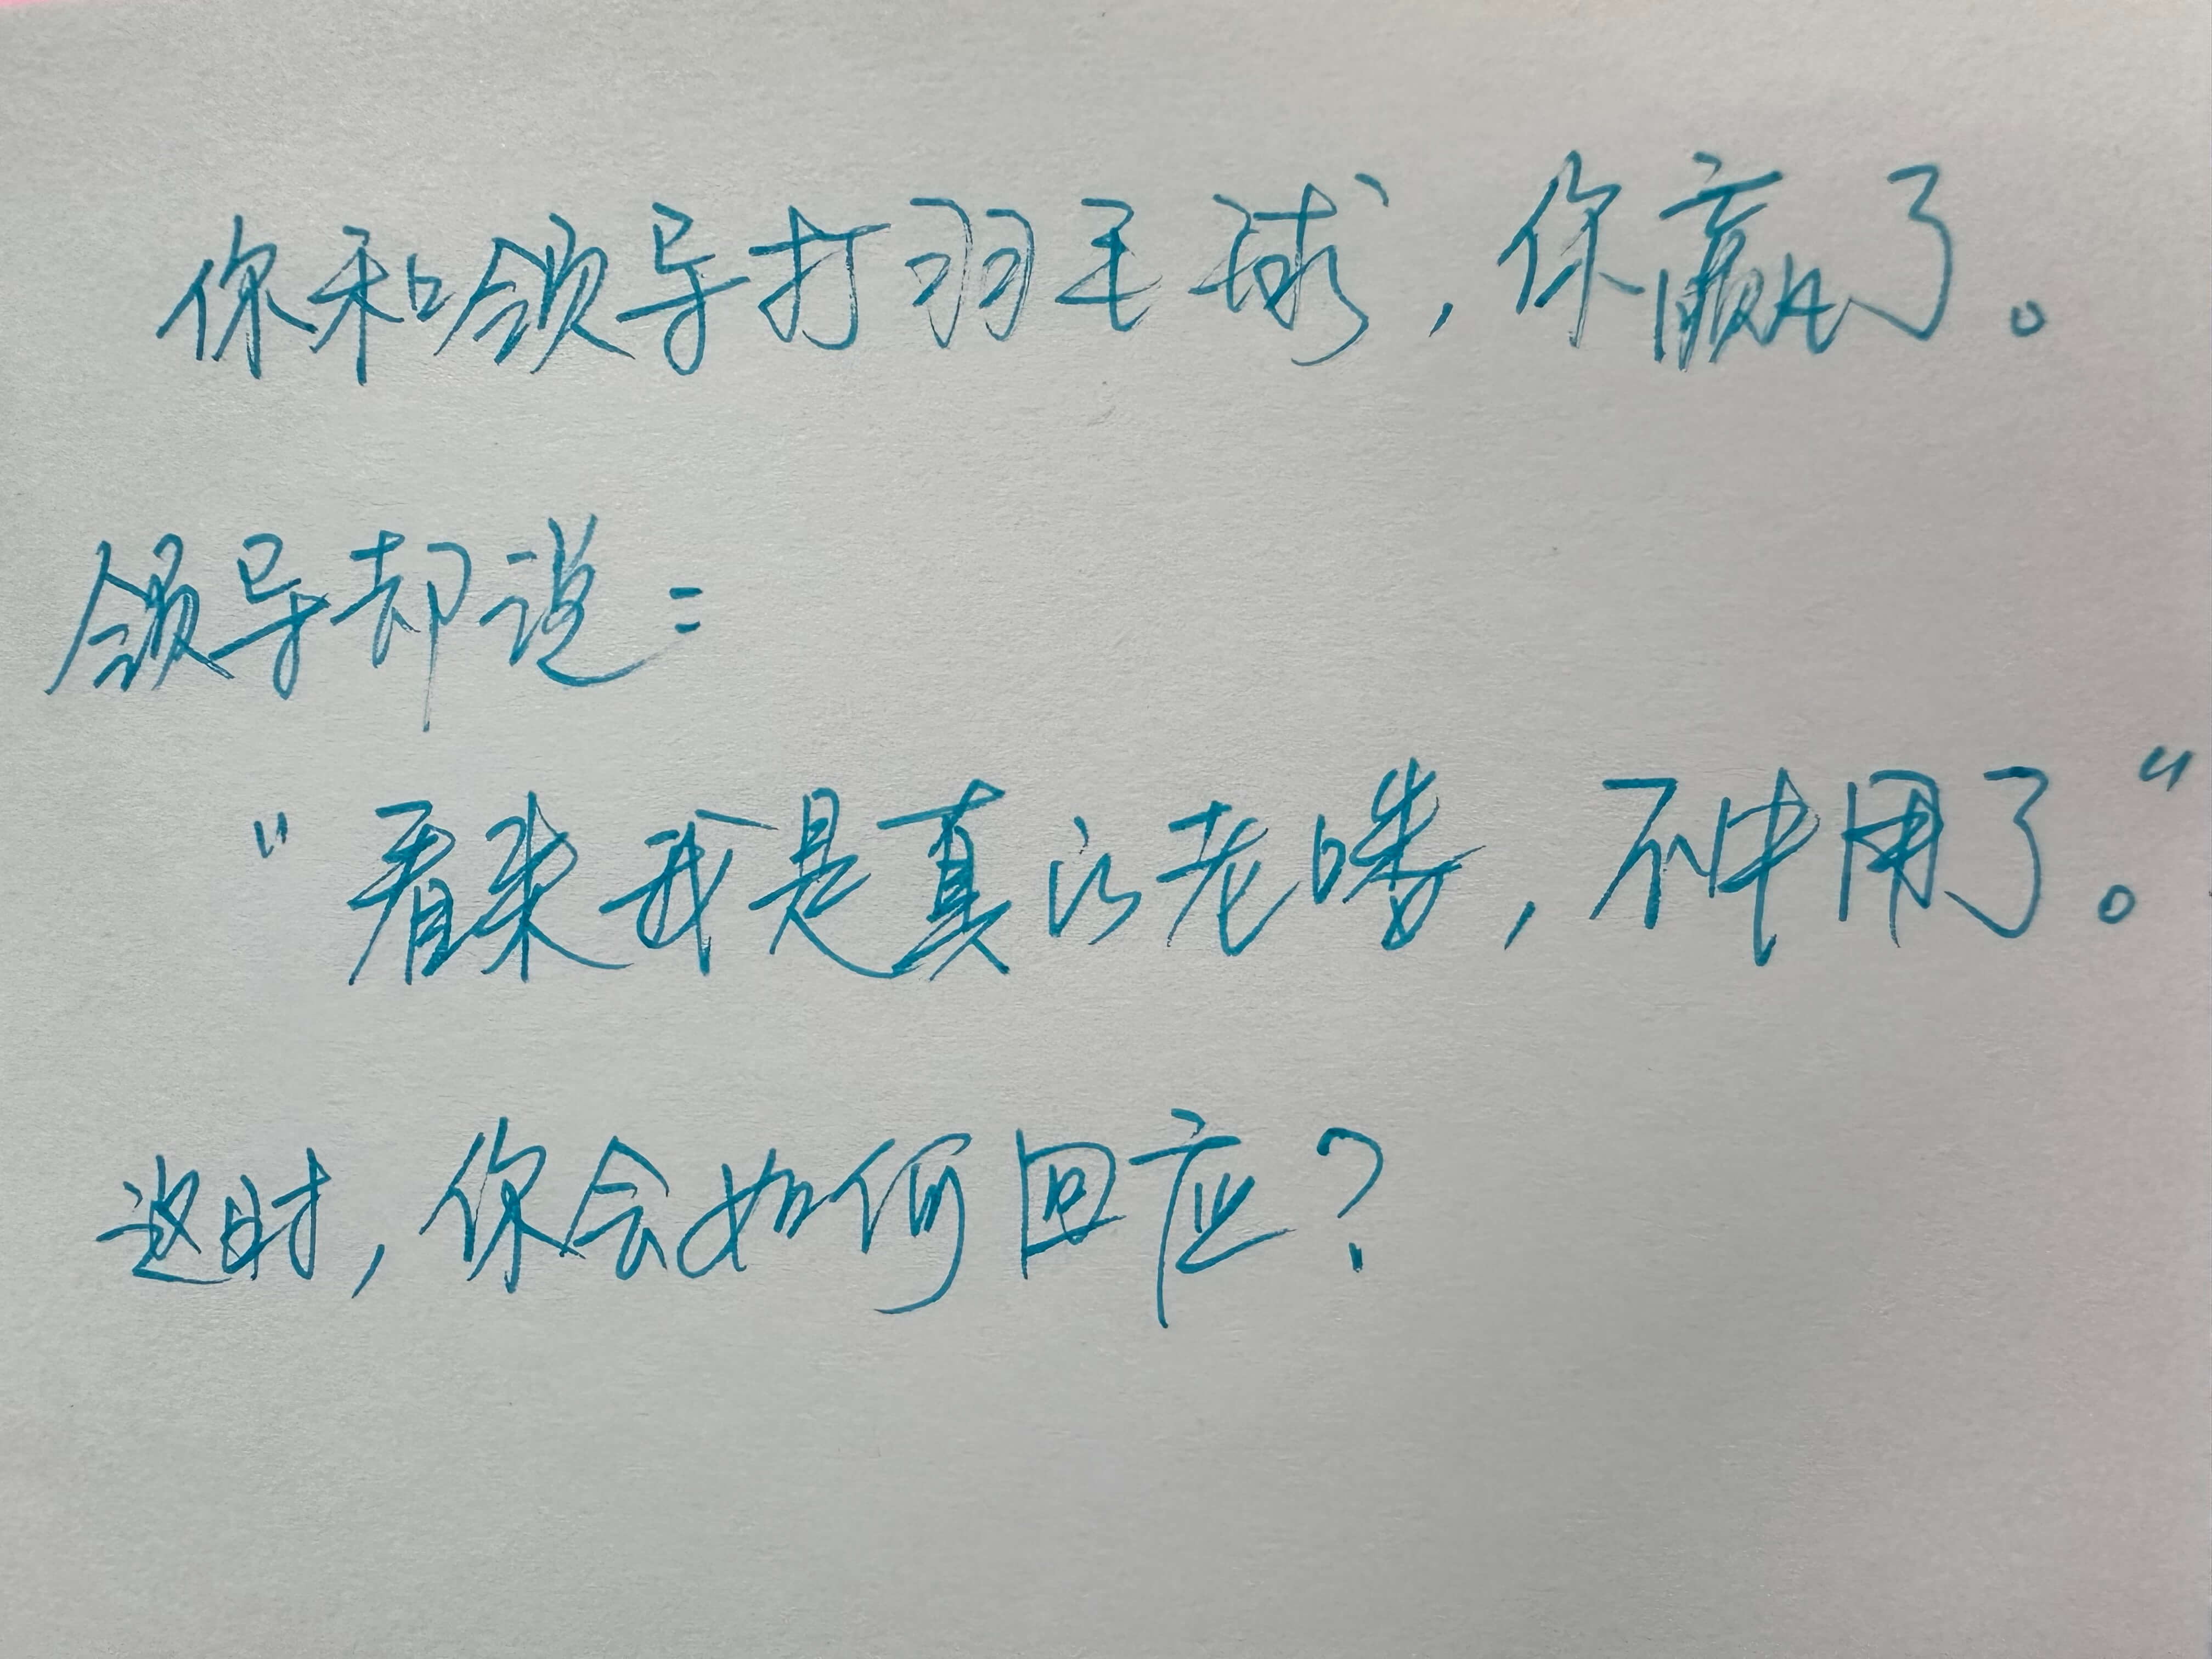 你和领导打羽毛球，你赢了。
领导却说：
“看来我是真的老喽，不中用了。”
这时，你会如何回应？